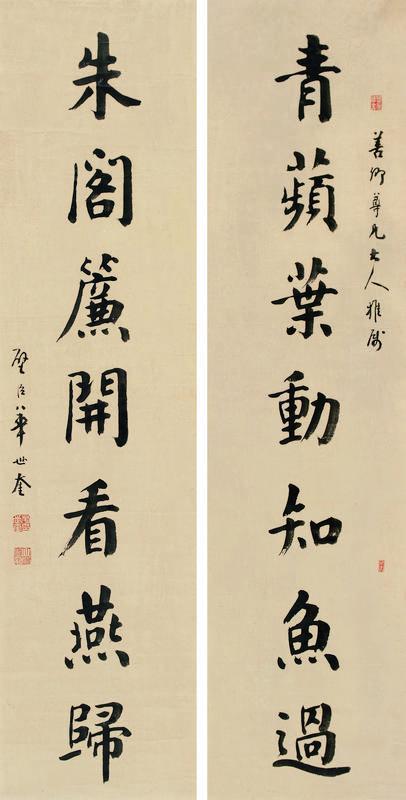 善卿尊兄大人雅属
青蘋葉動知魚過
朱閣簾開看燕歸
璧臣華世奎